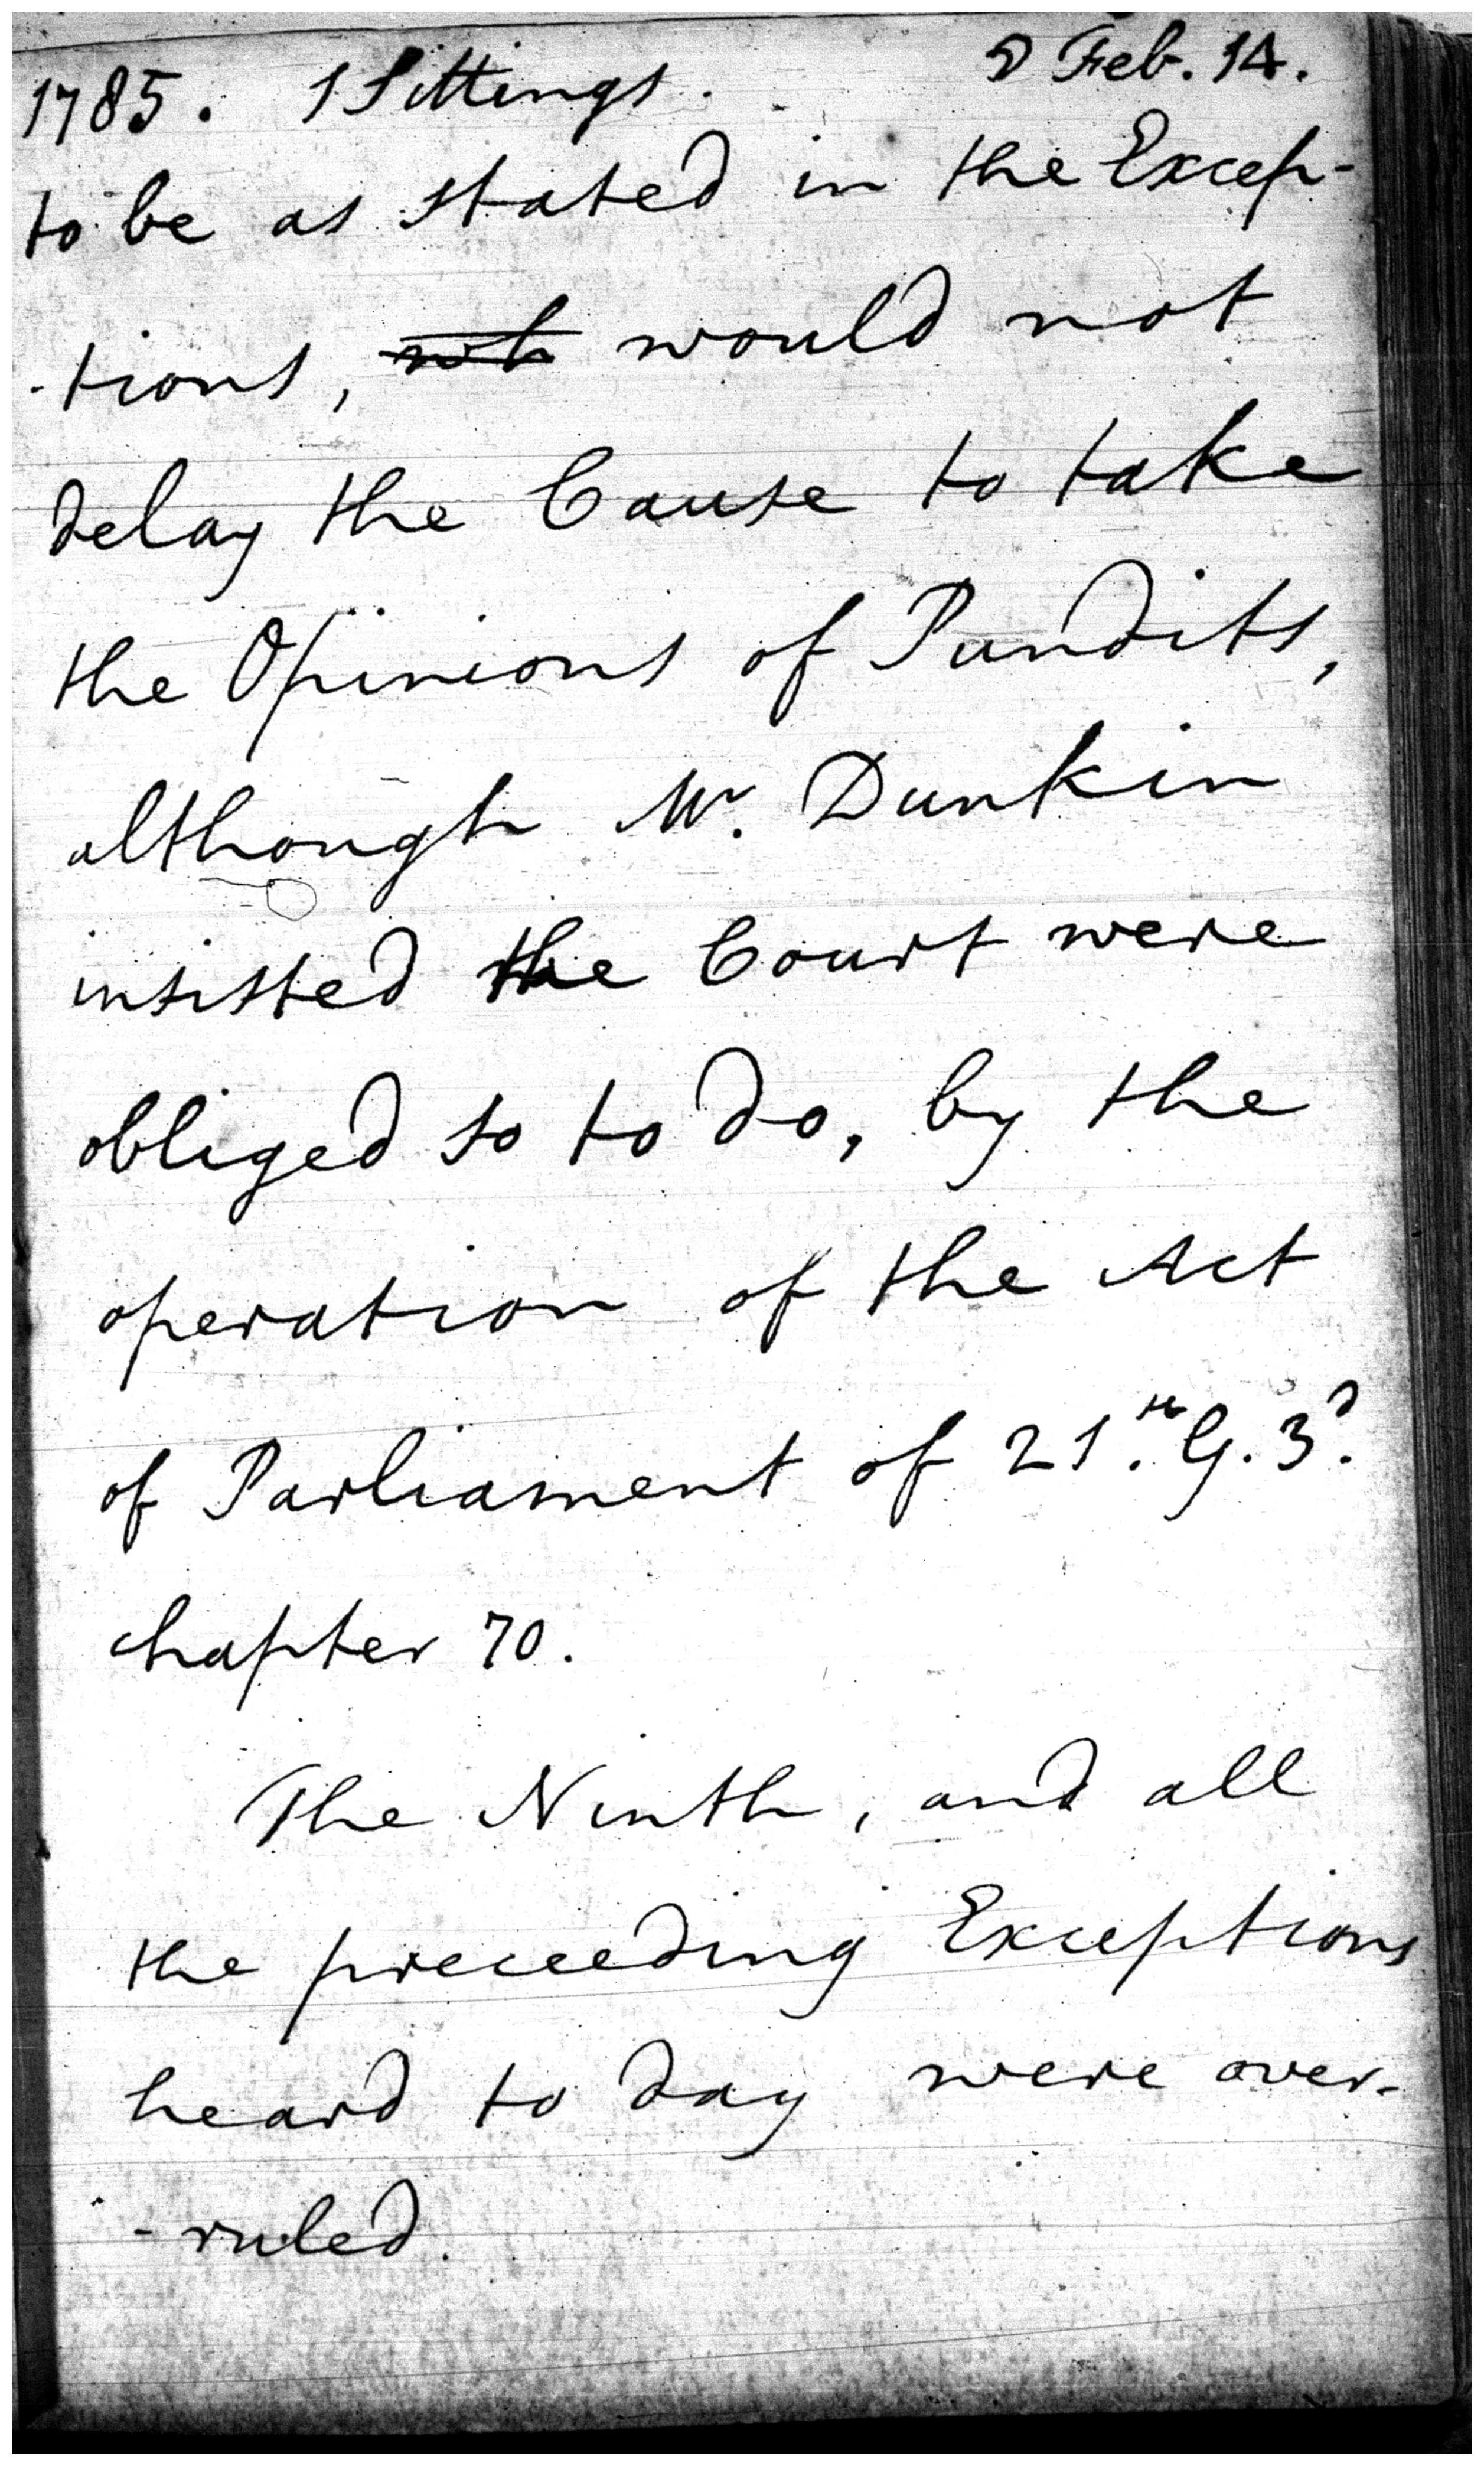 1785. 1 Sittings. ☽ Feb. 14.
to be as stated in the Excep-
-tions, would not
delay the Cause to take
the Opinions of Pundits,
although Mr. Dunkin
insisted the Court were
obliged so to do, by the
operation of the Act
of Parliament of 21.st G. 3.d
chapter 70.
The Ninth, and all
the preceeding Exceptions
heard to day were over-
-ruled.